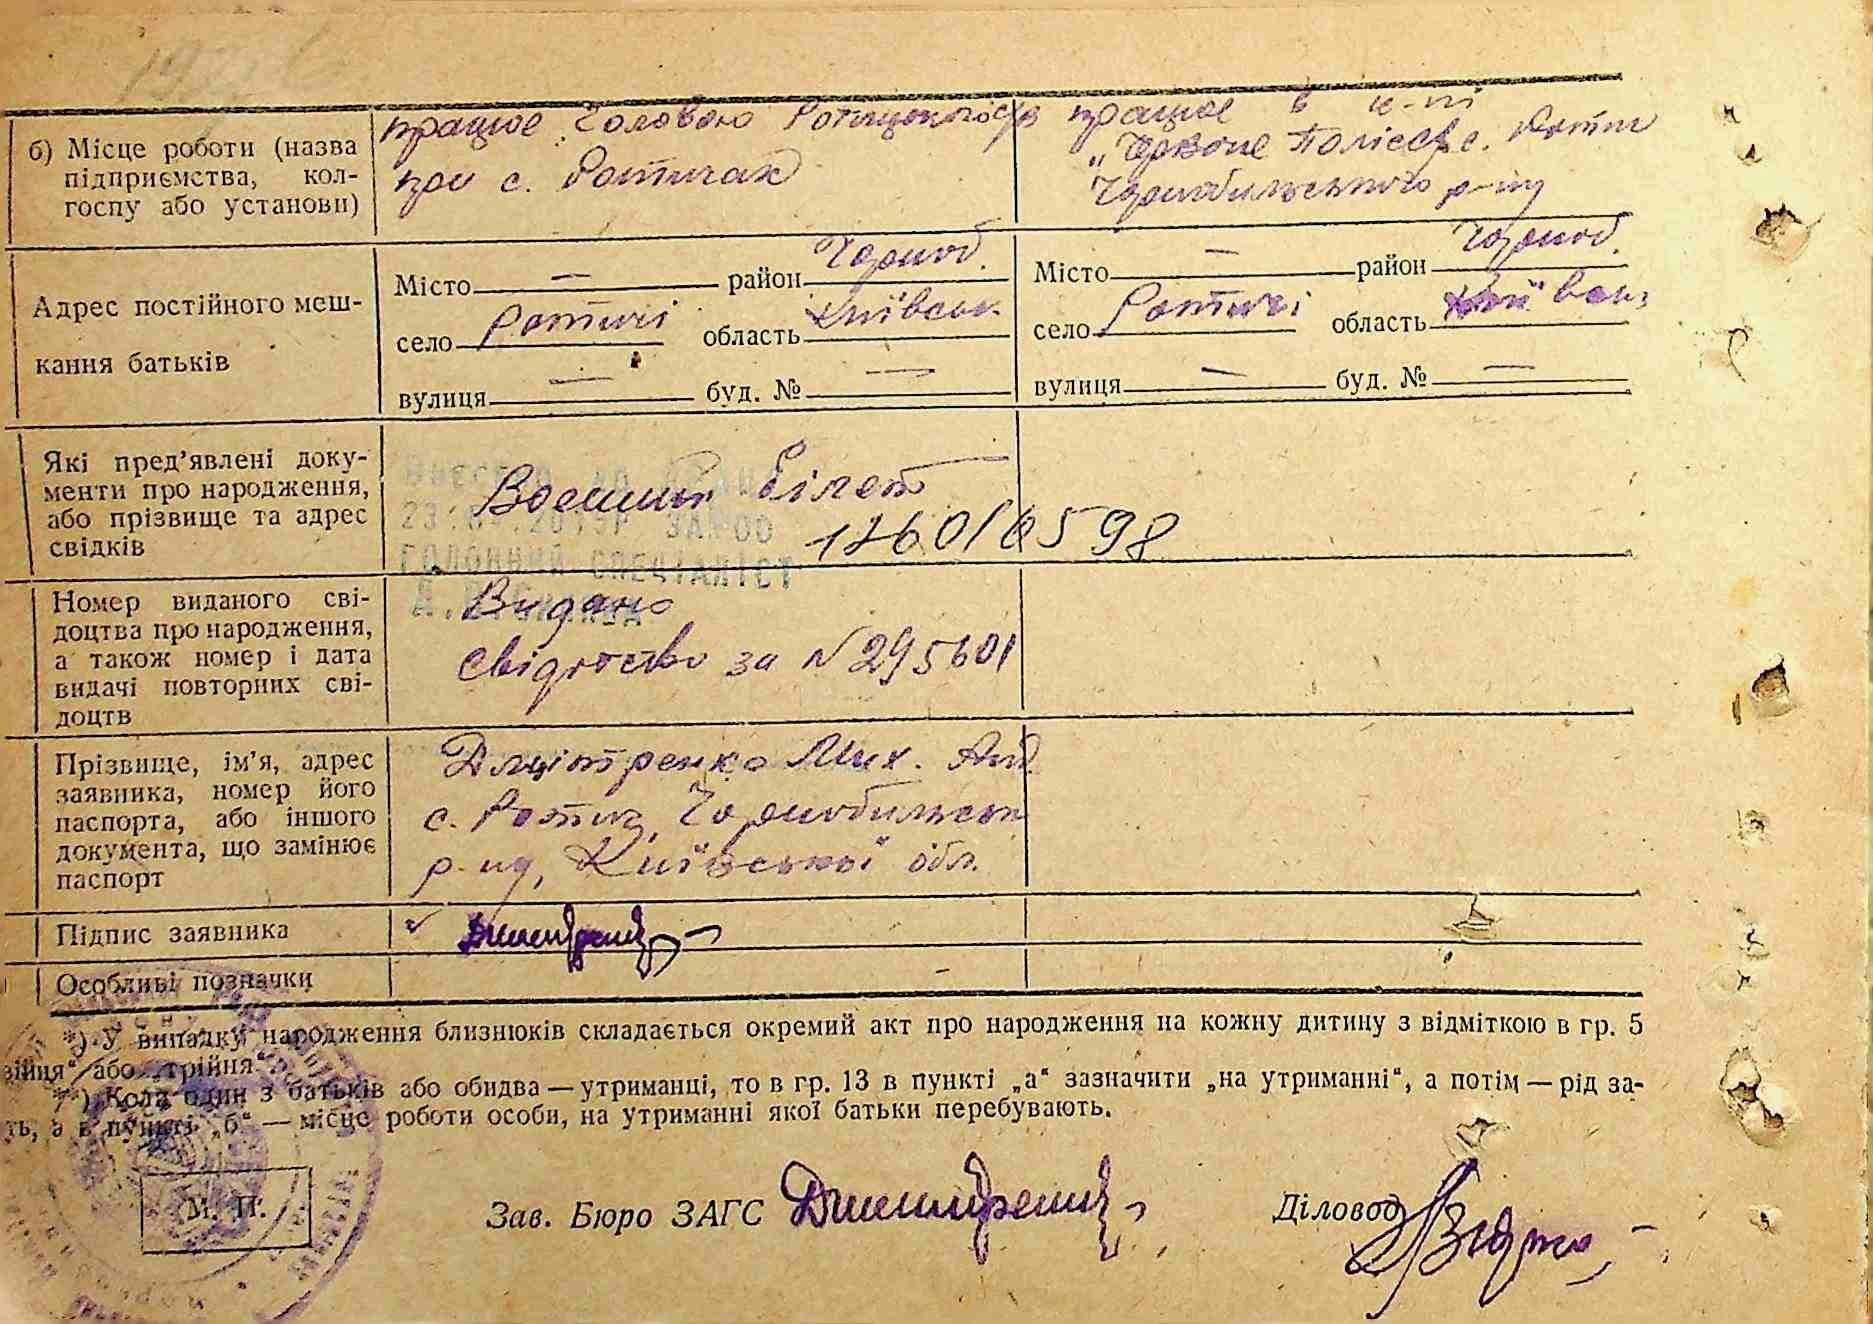 б) Місце роботи (назва
підприємства, кол-
госпу або установи)
працює Головою
при с. Ротичах
працює в к-пі
„Червоне Полісся" с. Ротич
Чорнобильського р-ну
Адрес постійного меш-
кання батьків
Місто — район Чорноб.
село Ротичі область Київськ.
вулиця — буд. № —
Місто — район Чорноб.
село Ротичі область Київськ
вулиця — буд. № —
Які пред'явлені доку-
менти про народження,
або прізвище та адрес
свідків
Военний білет
ГОЛОВНИЙ СПЕЦІАЛІСТ
Номер виданого сві-
доцтва про народження,
а також номер і дата
видачі повторних сві-
доцтв
Видано
Свідотство за N 295601
Прізвище, ім'я, адрес
заявника, номер його
паспорта, або іншого
документа, що замінює
паспорт
Дмітренко Мих. Анд.
с. Ротич, Чорнобильськ
р-ну, Київської обл.
Підпис заявника
Особливі позначки
*) У випадку народження близнюків складається окремий акт про народження на кожну дитину з відміткою в гр. 5
війня" або „трійня".
*) Коли один з батьків або обидва — утриманці, то в гр. 13 в пункті „а" зазначити „на утриманні", а потім — рід за-
ть, а в пункті „б" — місце роботи особи, на утриманні якої батьки перебувають.
М. П.
Зав. Бюро ЗАГС
Діловод